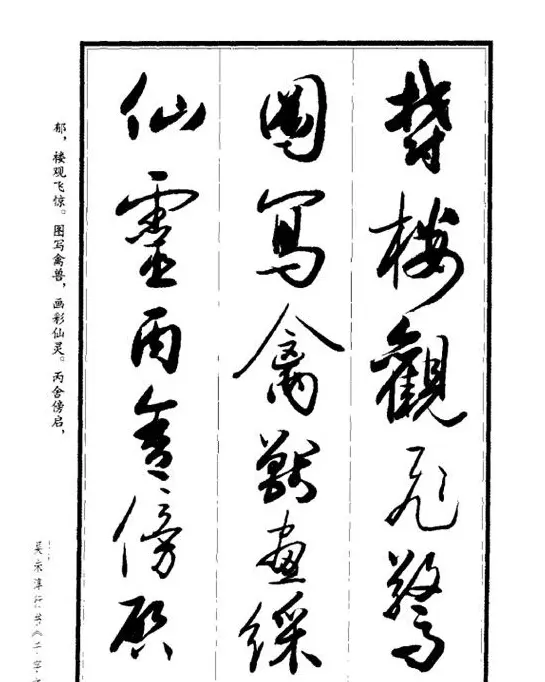 欝樓觀飛驚
圖寫禽獸畫綵
仙靈丙舍傍啟
郁，楼观飞惊。图写禽兽，画彩仙灵。丙舍傍启，
吴未淳行书《千字文